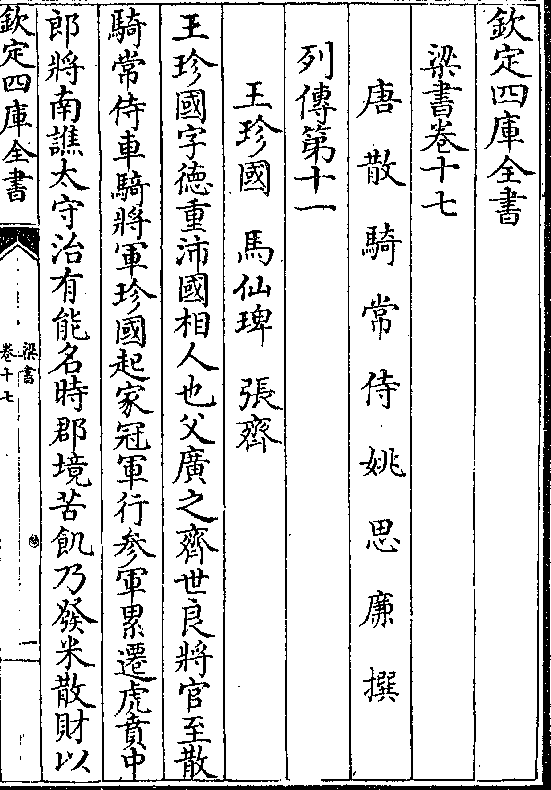 欽定四庫全書
梁書卷十七
唐散騎常侍姚思廉撰
列傳第十一
王珍國 馬仙琕 張齊
王珍國字徳重沛國相人也父廣之齊世良將官至散
騎常侍車騎將軍珍國起家冠軍行參軍累遷虎賁中
郎將南譙太守治有能名時郡境苦飢乃發米散財以
欽定四庫全書
梁書
卷十七
一